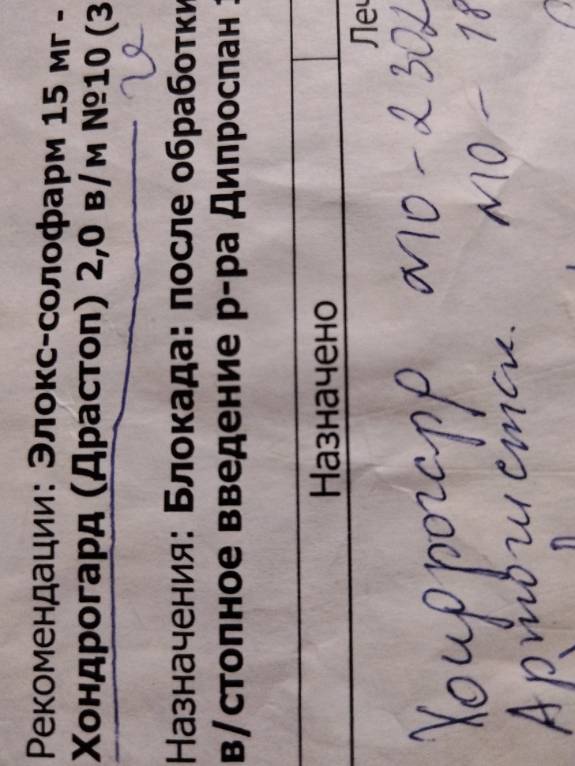 Рекомендации: Элокс-солофарм 15 мг -
Хондрогард (Драстоп) 2,0 в/м №10 (3
Назначения: Блокада: после обработки
в/стопное введение р-ра Дипроспан 1
Назначено
Леч
Хондрогард №10 - 2302
№10 - 18